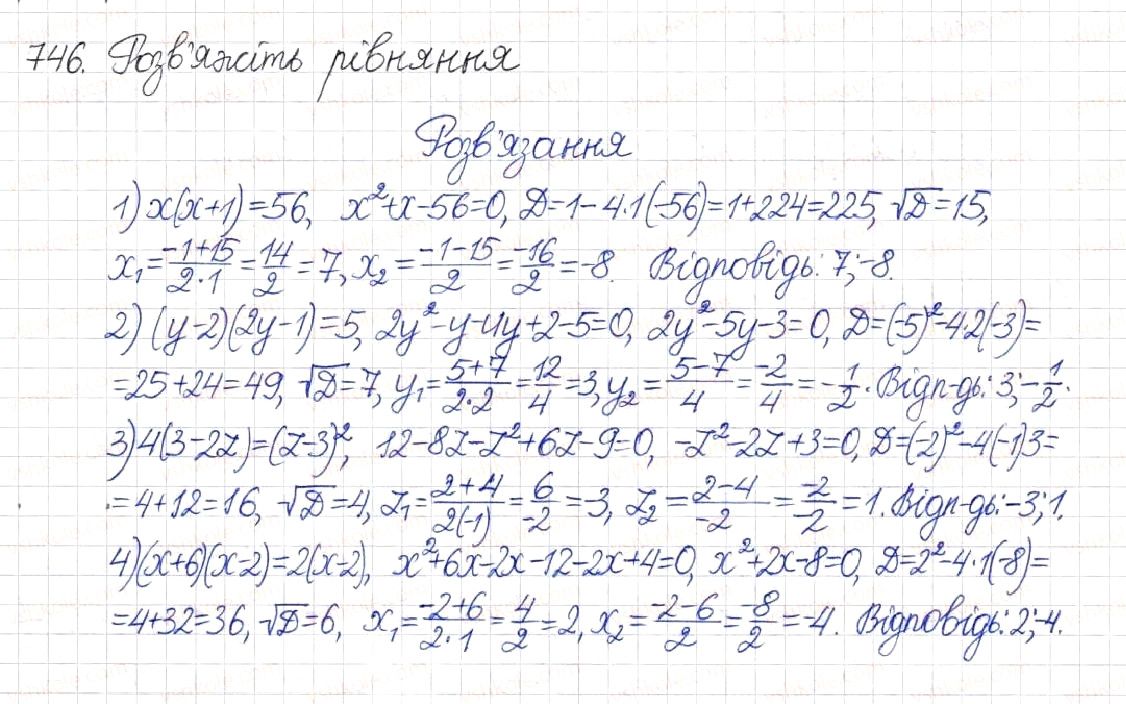 746. Розв'яжіть рівняння
Розв'язання
1) x(x+1)=56, x²+x-56=0, D=1-4·1(-56)=1+224=225, √D=15,
x₁=(-1+15)/(2·1)=14/2=7, x₂=(-1-15)/2=-16/2=-8. Відповідь: 7;-8.
2) (y-2)(2y-1)=5, 2y²-y-4y+2-5=0, 2y²-5y-3=0, D=(-5)²-4·2(-3)=
=25+24=49, √D=7, y₁=(5+7)/(2·2)=12/4=3, y₂=(5-7)/4=-2/4=-1/2. Відп-дь: 3;-1/2.
3) 4(3-2z)=(z-3)², 12-8z-z²+6z-9=0, -z²-2z+3=0, D=(-2)²-4(-1)3=
=4+12=16, √D=4, z₁=(2+4)/(2(-1))=6/-2=-3, z₂=(2-4)/-2=-2/-2=1. Відп-дь:-3;1.
4) (x+6)(x-2)=2(x-2), x²+6x-2x-12-2x+4=0, x²+2x-8=0, D=2²-4·1(-8)=
=4+32=36, √D=6, x₁=(-2+6)/(2·1)=4/2=2, x₂=(-2-6)/2=-8/2=-4. Відповідь: 2;-4.